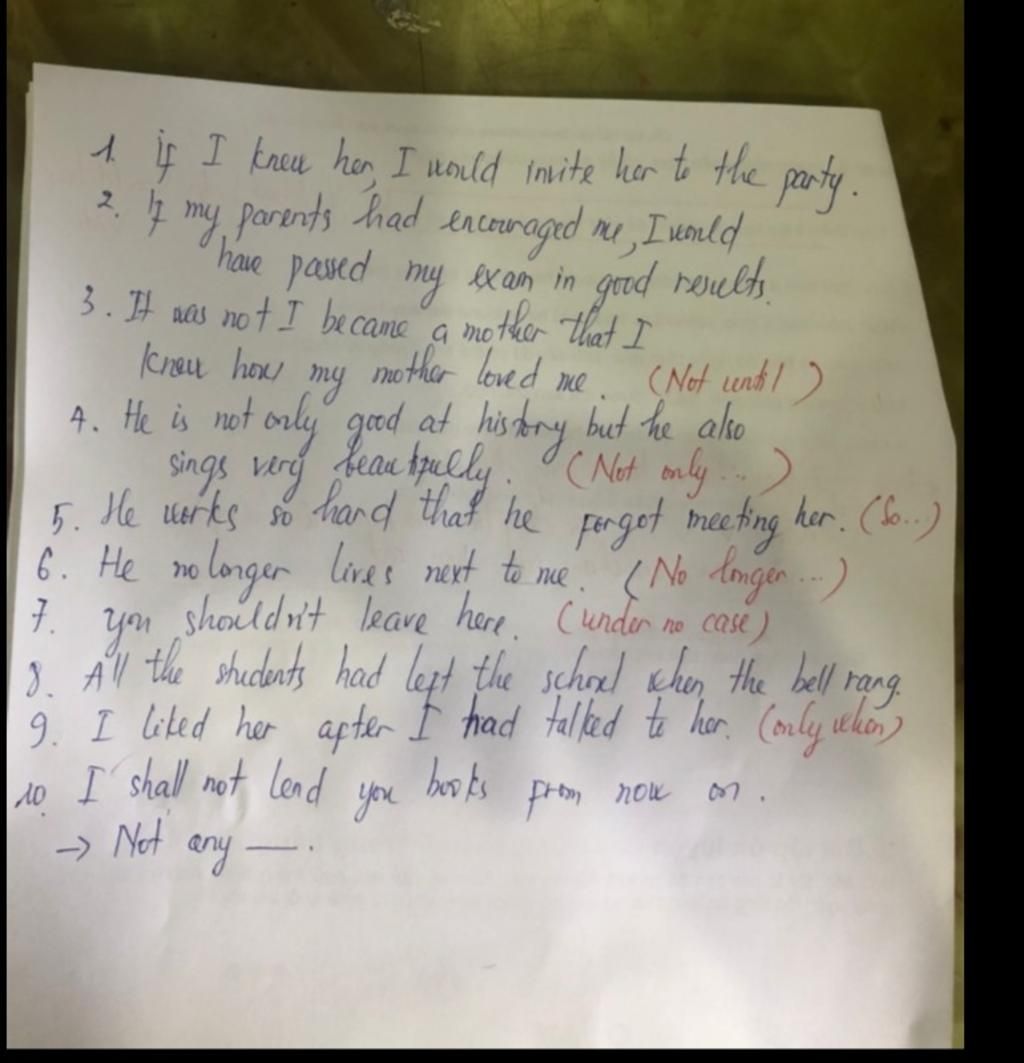 1. If I knew her, I would invite her to the party.
2. If my parents had encouraged me, I would
have passed my exam in good results.
3. It was not I became a mother that I
knew how my mother loved me. (Not until)
4. He is not only good at history but he also
sings very beautifully. (Not only...)
5. He works so hard that he forgot meeting her. (So...)
6. He no longer lives next to me. (No longer...)
7. you shouldn't leave here. (under no case)
8. All the students had left the school when the bell rang.
9. I liked her after I had talked to her. (only when)
10. I shall not lend you books from now on.
→ Not any —.